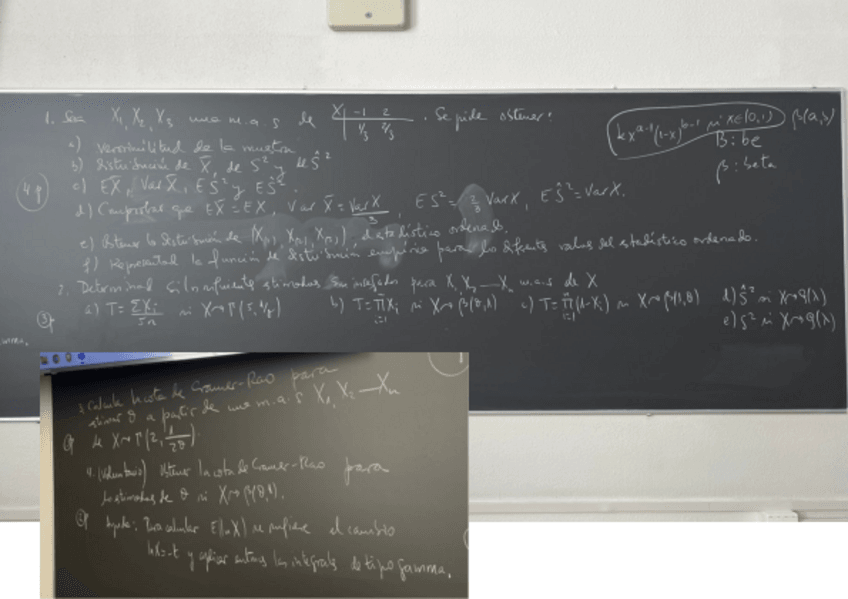 1. Sea X₁, X₂, X₃ una m.a.s de X | -1 2 . Se pide obtener:
1/3 2/3
a) Verosimilitud de la muestra.
b) Distribución de X̄, de S² y de Ŝ²
c) EX̄, Var X̄, ES² y EŜ².
4p
d) Comprobar que EX̄ = EX, Var X̄ = Var X / 3, ES² = 2/3 Var X, EŜ² = Var X.
e) Obtener la distribución de (X₍₁₎, X₍₂₎, X₍₃₎), el estadístico ordenado.
f) Representad la función de distribución empírica para los diferentes valores del estadístico ordenado.
kx^(a-1) (1-x)^(b-1) si x∈(0,1) β(a,b)
B: be
β: beta
2. Determinad si los siguientes estimadores son insesgados para X₁, X₂ — Xₙ m.a.s de X
a) T = ΣXᵢ / 5n si X→Γ(5, 1/θ) b) T = ∏ Xᵢ si X→β(θ,1) c) T = ∏ (1-Xᵢ) si X→β(1,θ) d) Ŝ² si X→P(λ)
e) S² si X→P(λ)
3. Calcula la cota de Cramer-Rao para
estimar θ a partir de una m.a.s X₁, X₂ — Xₙ
de X→Γ(2, 1/2θ).
4. (Voluntario) Obtener la cota de Cramer-Rao para
los estimadores de θ si X→β(θ,1).
Ayuda: Para calcular E(ln X) se sugiere el cambio
lnX=-t y aplicar entonces las integrales de tipo gamma.